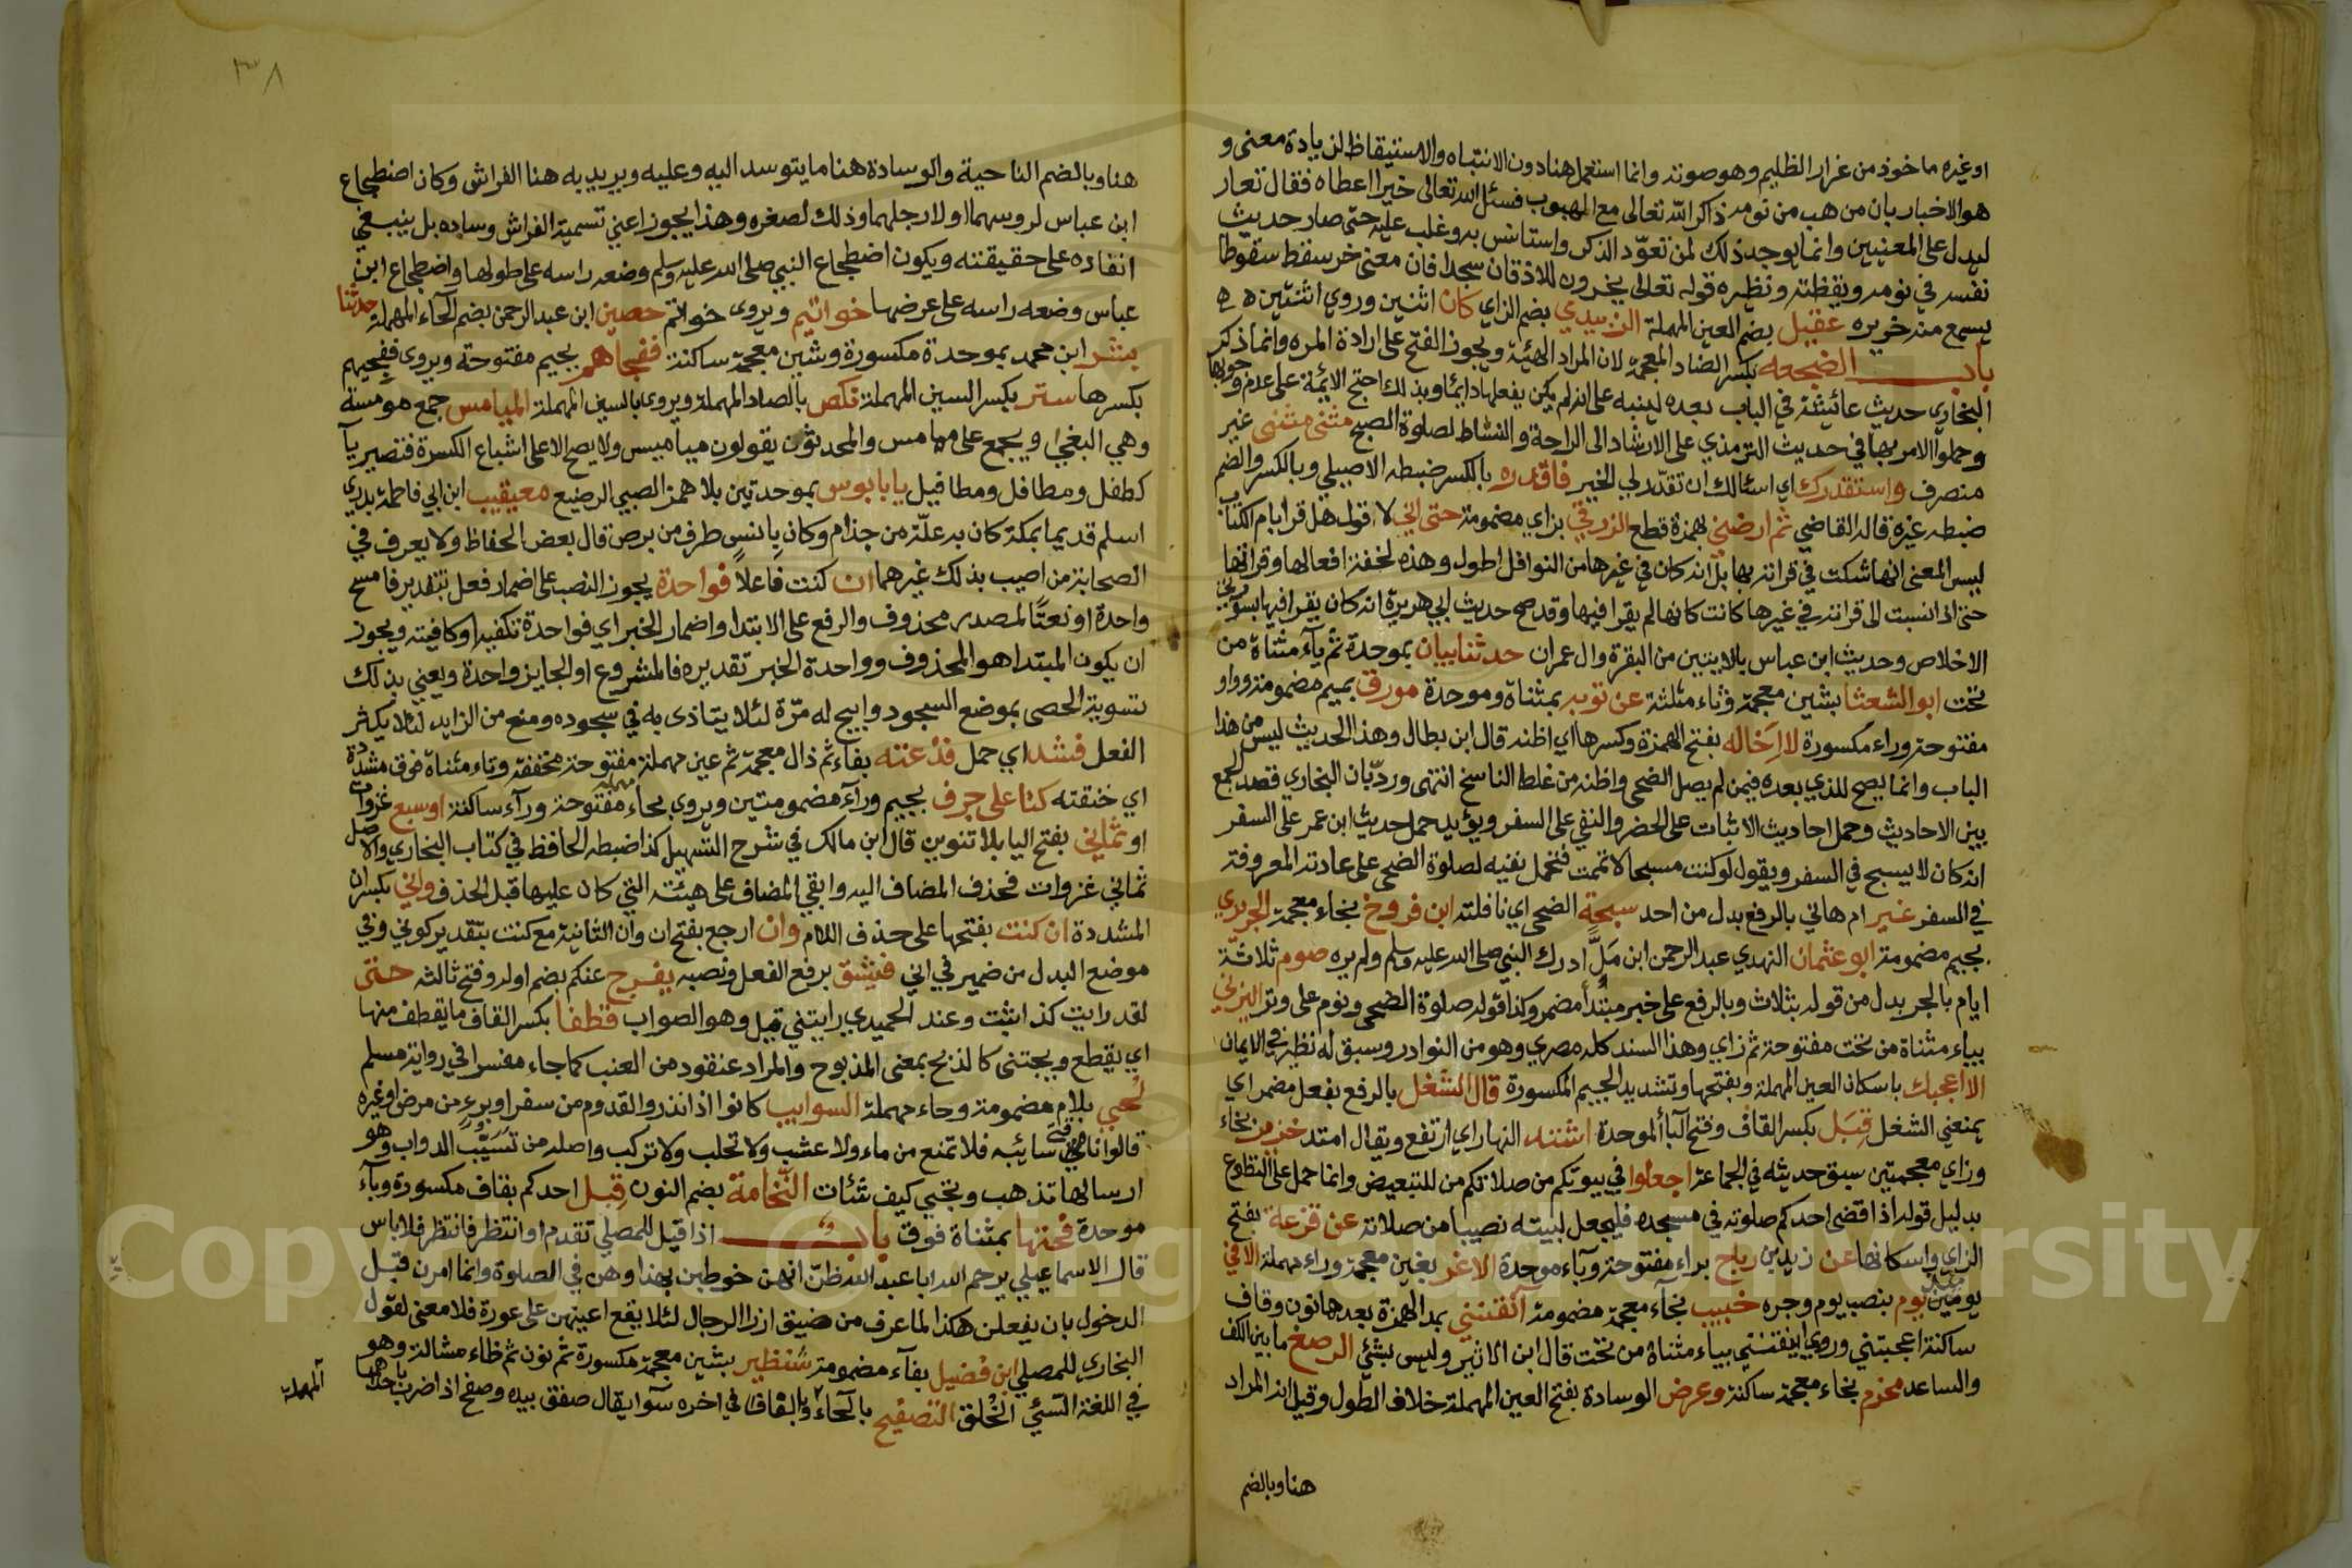 او غيره ماخوذ من غرار الظليم وهو صوته وانما استعمل هنا دون الانتباه والاستيقاظ لزيادة معنى و
هو الاخبار بان من هب من نومه ذاكر الله تعالى مع الهبوب فسئل الله تعالى خيرا اعطاه فقال تعار
ليدل على المعنيين وانما يوجد ذلك لمن تعوّد الذكر واستانس به وغلب عليه حتى صار حديث
نفسه في نومه ويقظته ونظيره قوله تعالى يخرون للاذقان سجدا فان معنى خر سقط سقوطا
يسمع منه خريره عقيل بضم العين المهملة الزبيدي بضم الزاي كان اثنين وروي اثنتين
باب الضجعه بكسر الضاد المعجمة لان المراد الهيئة ويجوز الفتح على ارادة المره وانما ذكر
البخاري حديث عائيشة في الباب بعده لينبه على انه لم يكن يفعلها دايما وبذلك احتج الايمة على عدم وجوبها
وحملوا الامر بها في حديث الترمذي على الارشاد الى الراحة والنشاط لصلوة الصبح مثنى مثنى غير
منصرف واستقدرك اي اسئالك ان تقدّر لي الخير فاقدره بالكسر ضبطه الاصيلي وبالكسر والضم
ضبطه غيره قاله القاضي ثم ارضني بهمزة قطع الزرقي بزاي مضمومة حتى اني لاقول هل قرا بام الكتاب
ليس المعنى انها شكت في قراته بها بل انه كان في غيرها من النوافل اطول وهذه لخفة افعالها وقراتها
حتى اذا نسبت الى قراته في غيرها كانت كانها لم يقرا فيها وقد صح حديث ابي هريرة انه كان يقرا فيها بسورتي
الاخلاص وحديث ابن عباس بالايتين من البقرة وال عمران حدثنا بيان بموحدة ثم يآء مثناة من
تحت ابو الشعثا بشين معجمة وثاء مثلثة عن توبه بمثناة وموحدة مورق بميم مضمومة وواو
مفتوحة وراء مكسورة لا اخاله بفتح الهمزة وكسرها اي اظنه قال ابن بطال وهذا الحديث ليس من هذا
الباب وانما يصح للذي بعده فيمن لم يصل الضحى واظنه من غلط الناسخ انتهى وردّ بان البخاري قصد الجمع
بين الاحاديث وحمل احاديث الاثبات على الحضر والنفي على السفر ويؤيد حمل حديث ابن عمر على السفر
انه كان لا يسبح في السفر ويقول لو كنت مسبحا لاتممت فتحمل نفيه لصلوة الضحى على عادته المعروفة
في السفر غير ام هاني بالرفع بدل من احد سبحة الضحى اي نافلته ابن فروخ بخاء معجمة الجريري
بجيم مضمومة ابو عثمان النهدي عبد الرحمن ابن مَلّ ادرك النبي صلى الله عليه وسلم ولم يره صوم ثلاثة
ايام بالجر بدل من قوله بثلاث وبالرفع على خبر مبتدأ مضمر وكذا قوله صلوة الضحى ونوم على وتر اليزني
بياء مثناة من تحت مفتوحة ثم زاي وهذا السند كله مصري وهو من النوادر وسبق له نظير في الايمان
الا اعجبك باسكان العين المهملة وبفتحها وتشديد الجيم المكسورة قال الشغل بالرفع بفعل مضمر اي
يمنعني الشغل قِبَل بكسر القاف وفتح البآ الموحدة اشتد النهار اي ارتفع ويقال امتد خزير بخاء
وزاي معجمتين سبق حديثه في الجماعة اجعلوا في بيوتكم من صلاتكم من للتبعيض وانما حمل على التطوع
بدليل قوله اذا قضى احدكم صلوته في مسجده فليجعل لبيته نصيبا من صلاته عن قزعة بفتح
الزاي واسكانها عن زيد بن رباح براء مفتوحة وبآء موحدة الاغر بغين معجمة وراء مهملة الا في
يومين يوم بنصب يوم وجره خبيب بخآء معجمة مضمومة آنقنني بمد الهمزة بعدها نون وقاف
ساكنة اعجبتني وروي اينقنني بياء مثناة من تحت قال ابن الاثير وليس بشئي الرصغ ما بين الكف
والساعد مخزم بخاء معجمة ساكنة وعرض الوسادة بفتح العين المهملة خلاف الطول وقيل انه المراد
هنا وبالضم
٣٨
هنا وبالضم الناحية والوسادة هنا ما يتوسد اليه وعليه ويريد به هنا الفراش وكان اضطجاع
ابن عباس لروسهما او لارجلهما وذلك لصغره وهذا يجوز اعني تسمية الفراش وساده بل ينبغي
انقاده على حقيقته ويكون اضطجاع النبي صلى الله عليه وسلم وضعه راسه على طولها واضطجاع ابن
عباس وضعه راسه على عرضها خواتيم ويروى خواتم حصين ابن عبد الرحمن بضم الحآء المهملة حدثنا
بشر ابن محمد بموحدة مكسورة وشين معجمة ساكنة ففجاهم بجيم مفتوحة ويروى ففجيهم
بكسرها ستر بكسر السين المهملة نكص بالصاد المهملة ويروى بالسين المهملة الميامس جمع مومسة
وهي البغي ويجمع على ميامس والمحدثون يقولون مياميس ولا يصح الا على اشباع الكسرة فتصير يآ
كطفل ومطافل ومطافيل يا بابوس بموحدتين بلا همز الصبي الرضيع معيقيب ابن ابي فاطمة بدري
اسلم قديما بمكة كان به علّة من جذام وكان بانس طرف من برص قال بعض الحفاظ ولا يعرف في
الصحابة من اصيب بذلك غيرهما ان كنت فاعلاً فواحدة يجوز النصب على اضمار فعل بتقدير فامسح
واحدة او نعتًا لمصدر محذوف والرفع على الابتدا واضمار الخبر اي فواحدة تكفيه او كافيته ويجوز
ان يكون المبتدا هو المحذوف وواحدة الخبر تقديره فالمشروع او الجايز واحدة ويعني بذلك
تسوية الحصى بموضع السجود وابيح له مرّة لئلا يتاذى به في سجوده ومنع من الزايد لئلا يكثر
الفعل فشد اي حمل فذعته بفاء ثم ذال معجمة ثم عين مهملة مفتوحة مخففة وتاء مثناة فوق مشددة
اي خنقته كنا على جرف بجيم ورآء مضمومتين ويروى بحاء مهملة مفتوحة ورآء ساكنة او سبع غزوات
او ثماني بفتح اليا بلا تنوين قال ابن مالك في شرح التسهيل كذا ضبطه الحافظ في كتاب البخاري والاصل
ثماني غزوات فحذف المضاف اليه وابقي المضاف على هيئته التي كان عليها قبل الحذف واني بكسر ان
المشددة ان كنت بفتحها على حذف اللام وان ارجع بفتح ان وان الثانية مع كنت بتقدير كوني وفي
موضع البدل من ضمير في اني فيشق برفع الفعل ونصبه يفرج عنكم بضم اوله وفتح ثالثه حتى
لقد رايت كذا اثبت وعند الحميدي رايتني قيل وهو الصواب قطفا بكسر القاف ما يقطف منها
اي يقطع ويجتنى كالذبح بمعنى المذبوح والمراد عنقود من العنب كما جاء مفسرا في رواية مسلم
لحي بلام مضمومة وحاء مهملة السوايب كانوا اذا نذروا القدوم من سفر او برء من مرض او غيره
قالوا ناقتي سائبه فلا تمنع من ماء ولا عشب ولا تحلب ولا تركب واصله من تسيّب الدواب وهو
ارسالها تذهب وتجي كيف شئات النّخامة بضم النون قبل احدكم بقاف مكسورة وبآء
موحدة فحتها بمثناة فوق باب اذا قيل للمصلي تقدم او انتظر فانتظر فلا باس
قال الاسماعيلي يرحم الله ابا عبد الله ظنّ انهن خوطبن بهذا وهن في الصلوة وانما امرن قبل
الدخول بان يفعلن هكذا لما عرف من ضيق ازر الرجال لئلا يقع اعينهن على عورة فلا معنى لقول
البخاري للمصلي ابن فضيل بفآء مضمومة شنظير بشين معجمة مكسورة ثم نون ثم ظاء مشالة وهو
في اللغة السّئي الخُلق التصفيح بالحاء وبالقاف في اخره سوآ يقال صفق بيده وصفح اذا ضرب باحداهما
المهملة
Copyright © King Saud University